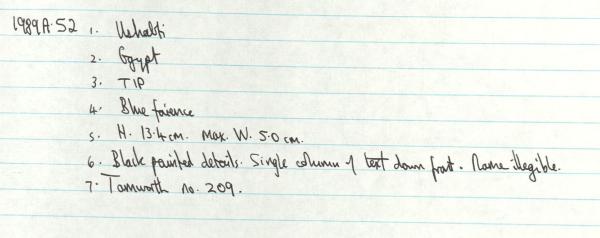 1989A.52 1. Ushabti
2. Egypt
3. TIP
4. Blue faience
5. H. 13.4cm. Max. W. 5.0 cm.
6. Black painted details. Single column of text down front. Name illegible.
7. Tamworth no. 209.